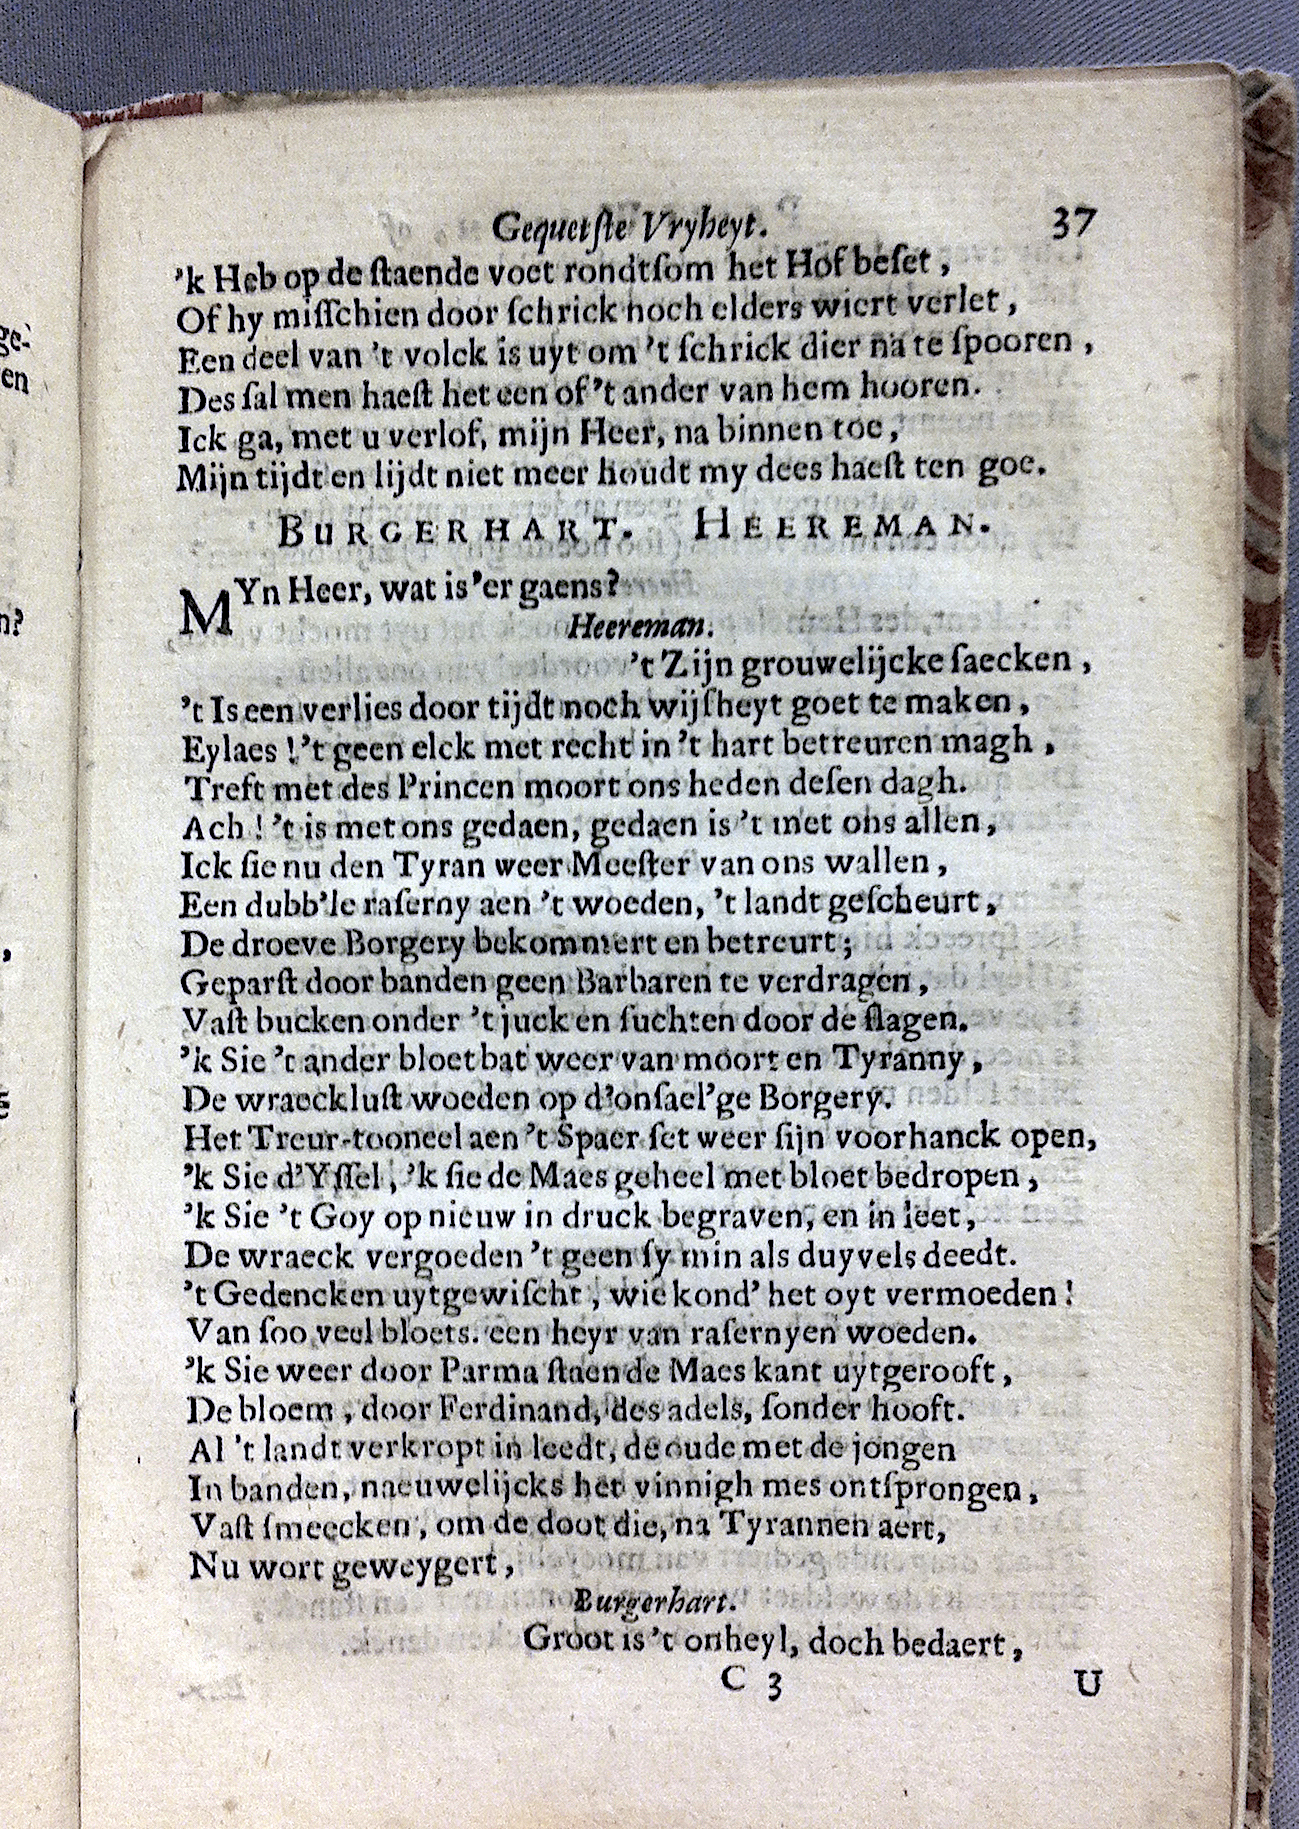 Gequetſte Vryheyt. 37
’k Heb op de ſtaende voet rondtſom het Hof beſet,
Of hy miſſchien door ſchrick noch elders wiert verlet,
Een deel van ’t volck is uyt om ’t ſchrick dier na te ſpooren,
Des ſal men haeſt het een of ’t ander van hem hooren.
Ick ga, met u verlof, mijn Heer, na binnen toe,
Mijn tijdt en lijdt niet meer houdt my dees haeſt ten goe.
BURGERHART. HEEREMAN.
MYn Heer, wat is ’er gaens?
Heereman.
’t Zijn grouwelijcke ſaecken,
’t Is een verlies door tijdt noch wijſheyt goet te maken,
Eylaes! ’t geen elck met recht in ’t hart betreuren magh,
Treft met des Princen moort ons heden deſen dagh.
Ach! ’t is met ons gedaen, gedaen is ’t met ons allen,
Ick ſie nu den Tyran weer Meeſter van ons wallen,
Een dubb’le raſerny aen ’t woeden, ’t landt geſcheurt,
De droeve Borgery bekommert en betreurt;
Geparſt door banden geen Barbaren te verdragen,
Vaſt bucken onder ’t juck en ſuchten door de ſlagen.
’k Sie ’t ander bloetbat weer van moort en Tyranny,
De wraeckluſt woeden op d’onſael’ge Borgery.
Het Treur-tooneel aen ’t Spaer ſet weer ſijn voorhanck open,
’k Sie d’Yſſel, ’k ſie de Maes geheel met bloet bedropen,
’k Sie ’t Goy op nieuw in druck begraven, en in leet,
De wraeck vergoeden ’t geen ſy min als duyvels deedt.
’t Gedencken uytgewiſcht, wie kond’ het oyt vermoeden!
Van ſoo veel bloets. een heyr van raſernyen woeden.
’k Sie weer door Parma ſtaen de Maes kant uytgerooft,
De bloem, door Ferdinand, des adels, ſonder hooft.
Al ’t landt verkropt in leedt, de oude met de jongen
In banden, naeuwelijcks het vinnigh mes ontſprongen,
Vaſt ſmeecken, om de doot die, na Tyrannen aert,
Nu wort geweygert,
Burgerhart.
Groot is ’t onheyl, doch bedaert,
C 3 U